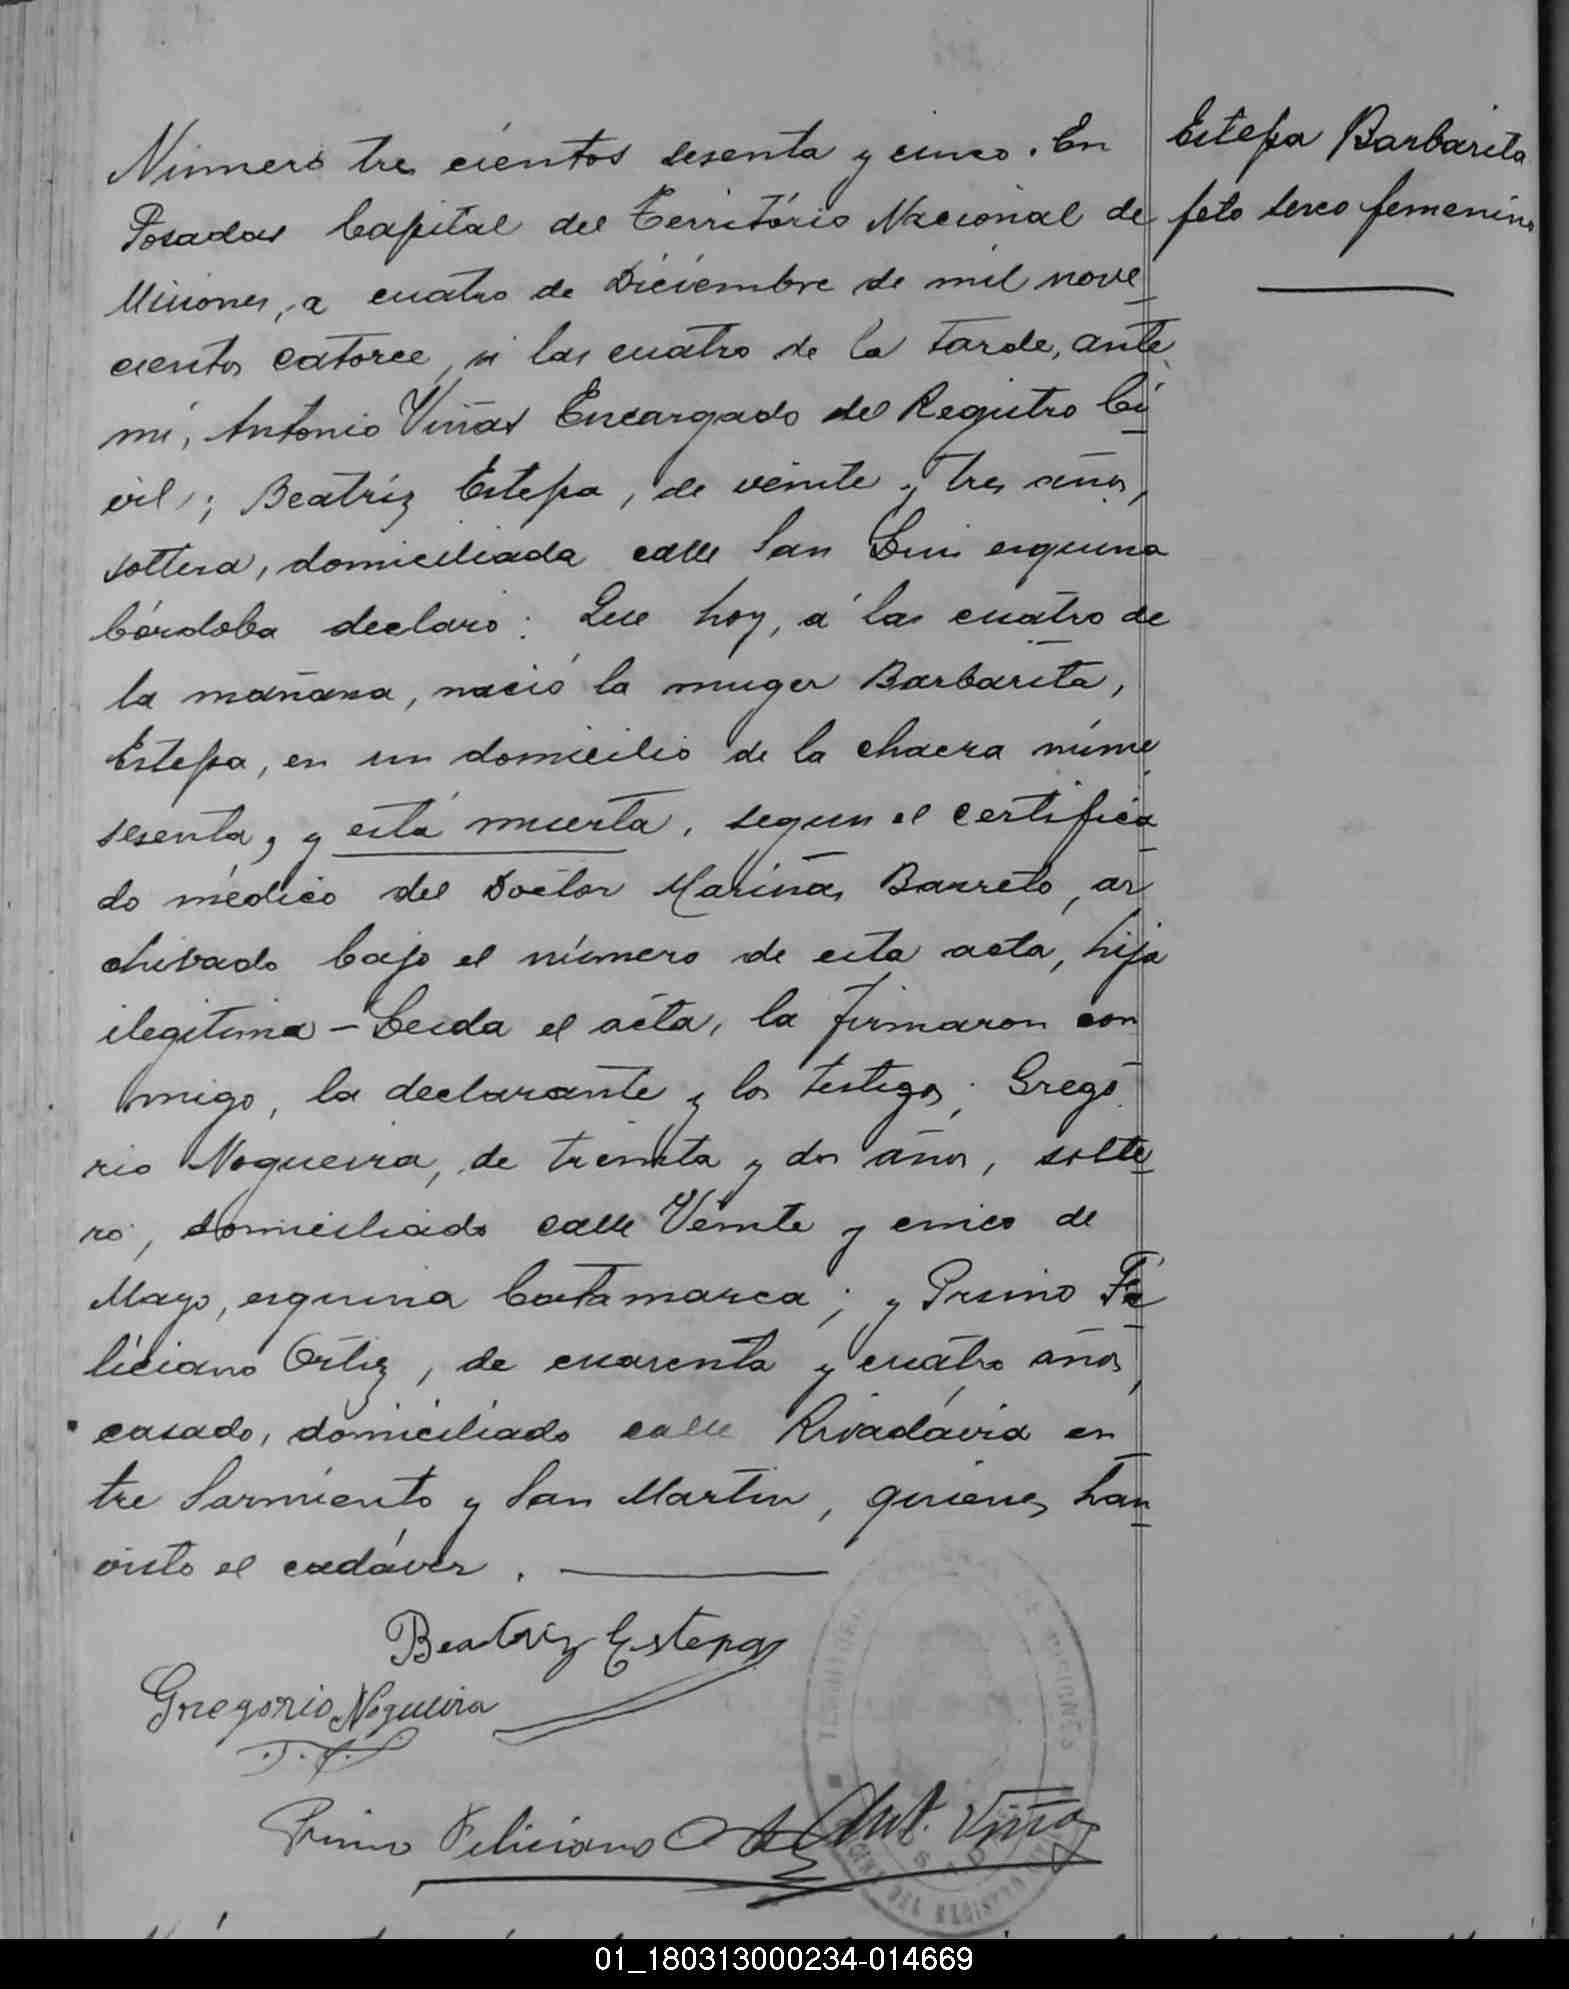 Estepa Barbarita
feto sexo femenino
Número tre cientos sesenta y cinco. En
Posadas Capital del Território Nacional de
Misiones, a cuatro de Diciembre de mil nove
cientos catorce, á las cuatro de la tarde, ante
mí, Antonio Viñas Encargado del Registro Ci
vil; Beatríz Estepa, de veinte y tres años,
soltera, domiciliada calle San Luis esquina
Córdoba declaró: Que hoy, á las cuatro de
la mañana, nació la muger Barbarita,
Estepa, en un domicilio de la chacra núme
sesenta, y está muerta, segun el certifica
do médico del Doctor Mariñas Barreto, ar
chivado bajo el número de esta acta, hija
ilegítima - Leida el acta, la firmaron con
migo, la declarante y los testigos; Grego
rio Nogueira, de treinta y dos años, solte
ro, domiciliado calle Veinte y cinco de
Mayo, esquina Catamarca; y Primo Fe
liciano Ortiz, de cuarenta y cuatro años,
casado, domiciliado calle Rivadávia en
tre Sarmiento y San Martin, quienes han
visto el cadáver.
Beatriz Estepa
Gregorio Nogueira
Primo Feliciano Ortiz
Ant. Viñas
01_180313000234-014669